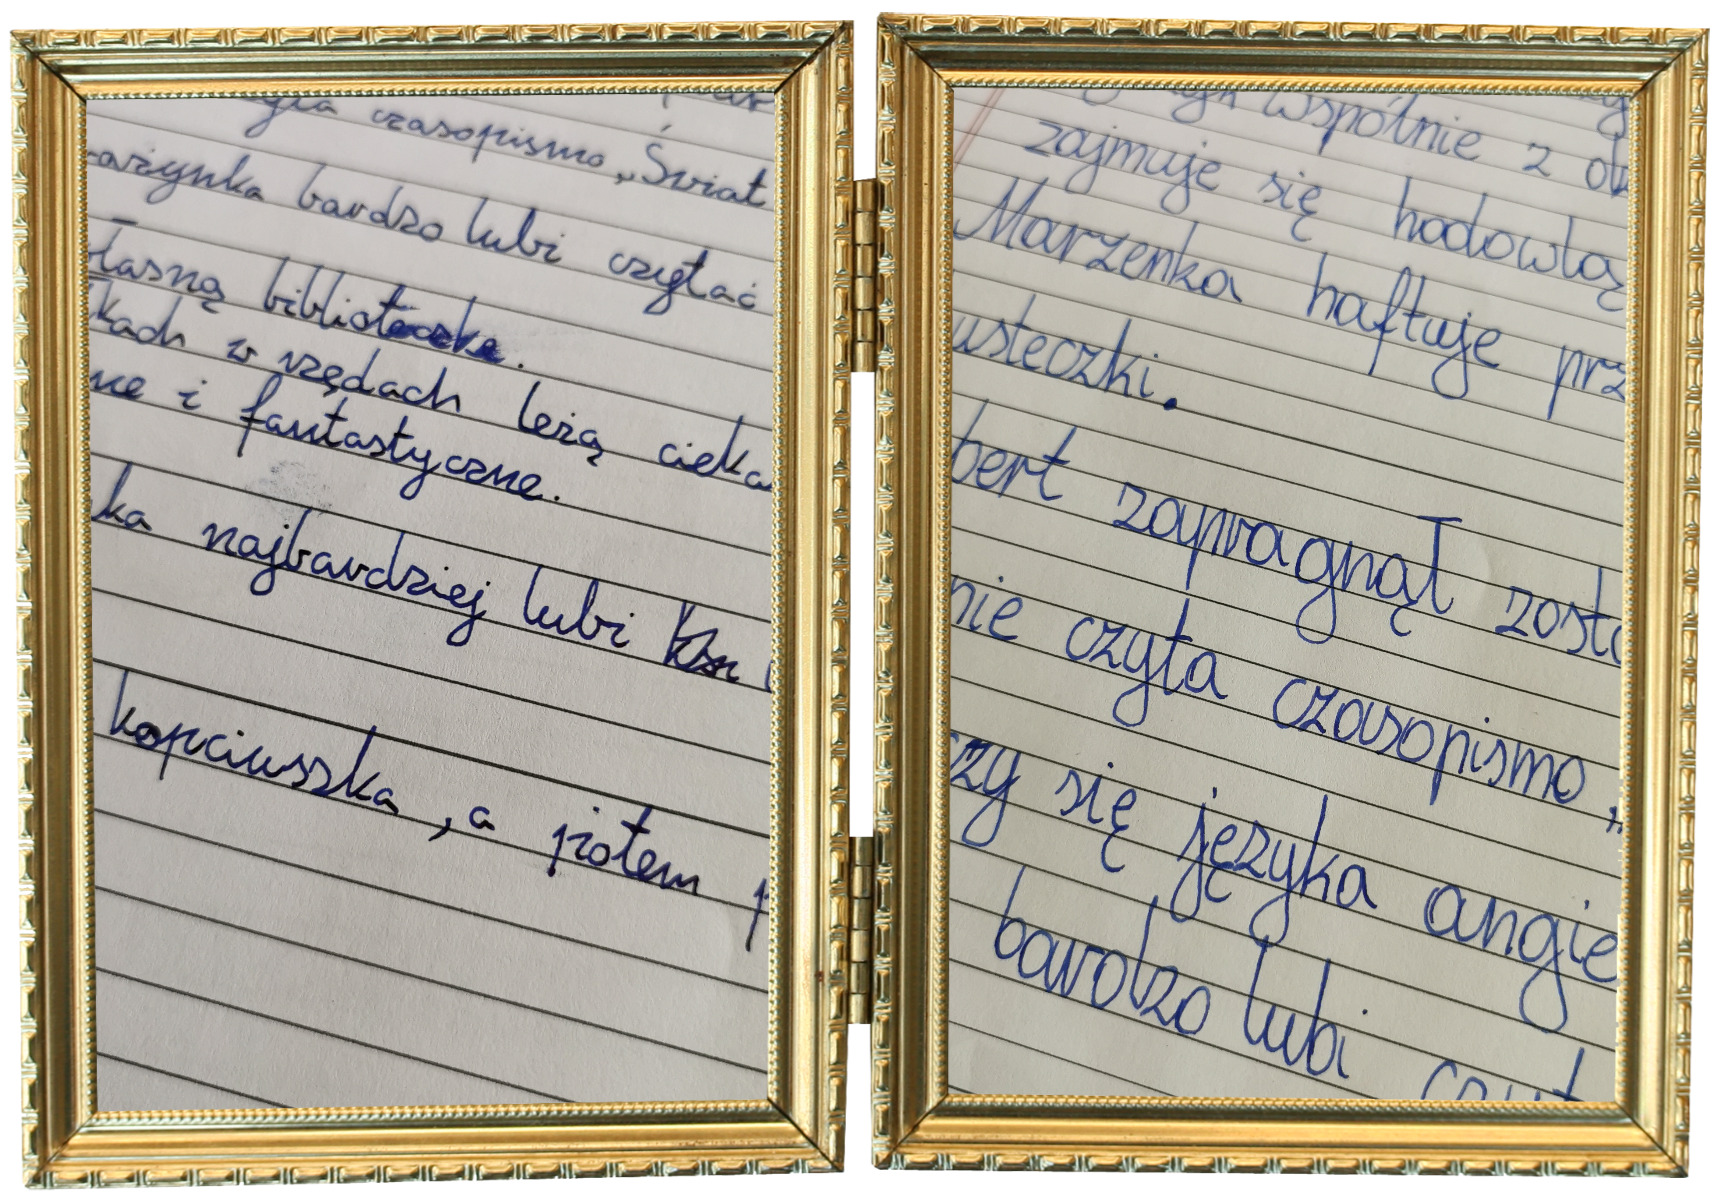 czasopismo „Świat
bardzo lubi czytać
biblioteczkę.
w rzędach leżą cieka
ne i fantastyczne.
ka najbardziej lubi
kopciuszka, a potem p
wspólnie z
zajmuje się hodowlą
Marzenka haftuje prz
usteczki.
bert zapragnął zosta
nie czyta czasopismo „
czy się języka angie
bardzo lubi czyt